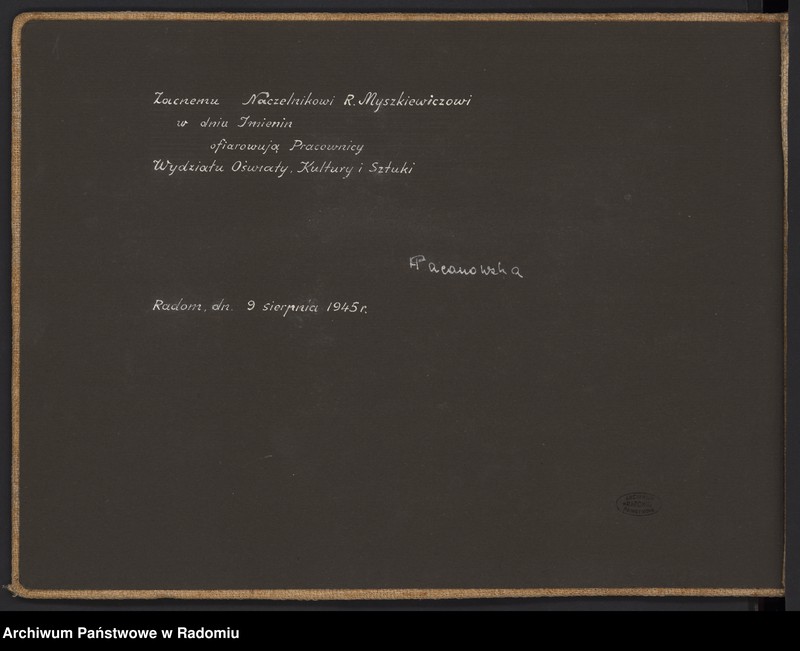 Zacnemu Naczelnikowi R. Myszkiewiczowi
w dniu Imienin
ofiarowują Pracownicy
Wydziału Oświaty, Kultury i Sztuki
Pacanowska
Radom, dn. 9 sierpnia 1945 r.
Archiwum Państwowe w Radomiu